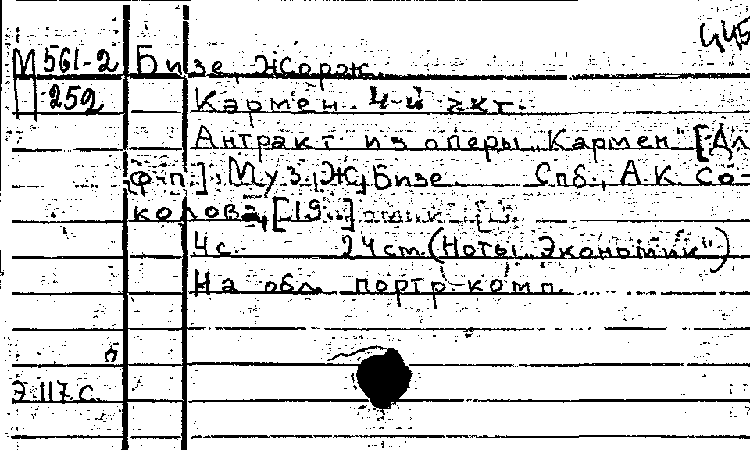 445
М 561-2 Бизе, Жорж.
П 259 Кармен. 4-й акт.
Антракт из оперы „Кармен" [Дл
ф-п.]. Муз. Ж. Бизе. Спб., А.К. Со-
колова, [19..]
4 с. 24 см. (Ноты „Экономик")
На обл. портр. комп.
Э 117 с.